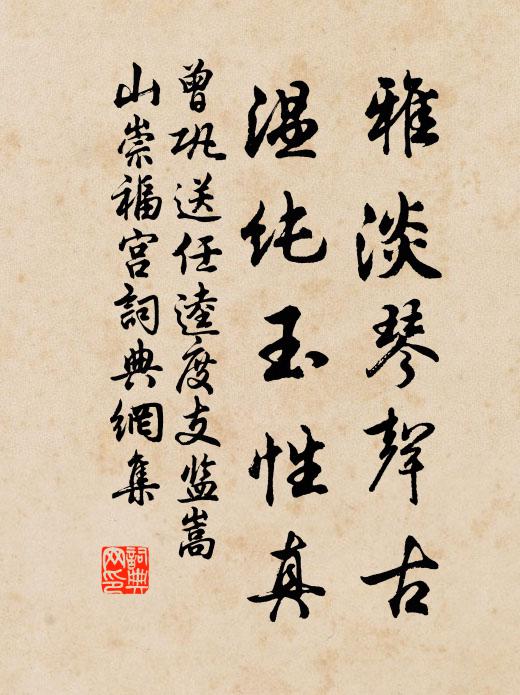 雅淡琴聲古
温纯玉性真
曾巩送任逵度支监嵩
山崇福宫詞典網集
詞典
网印